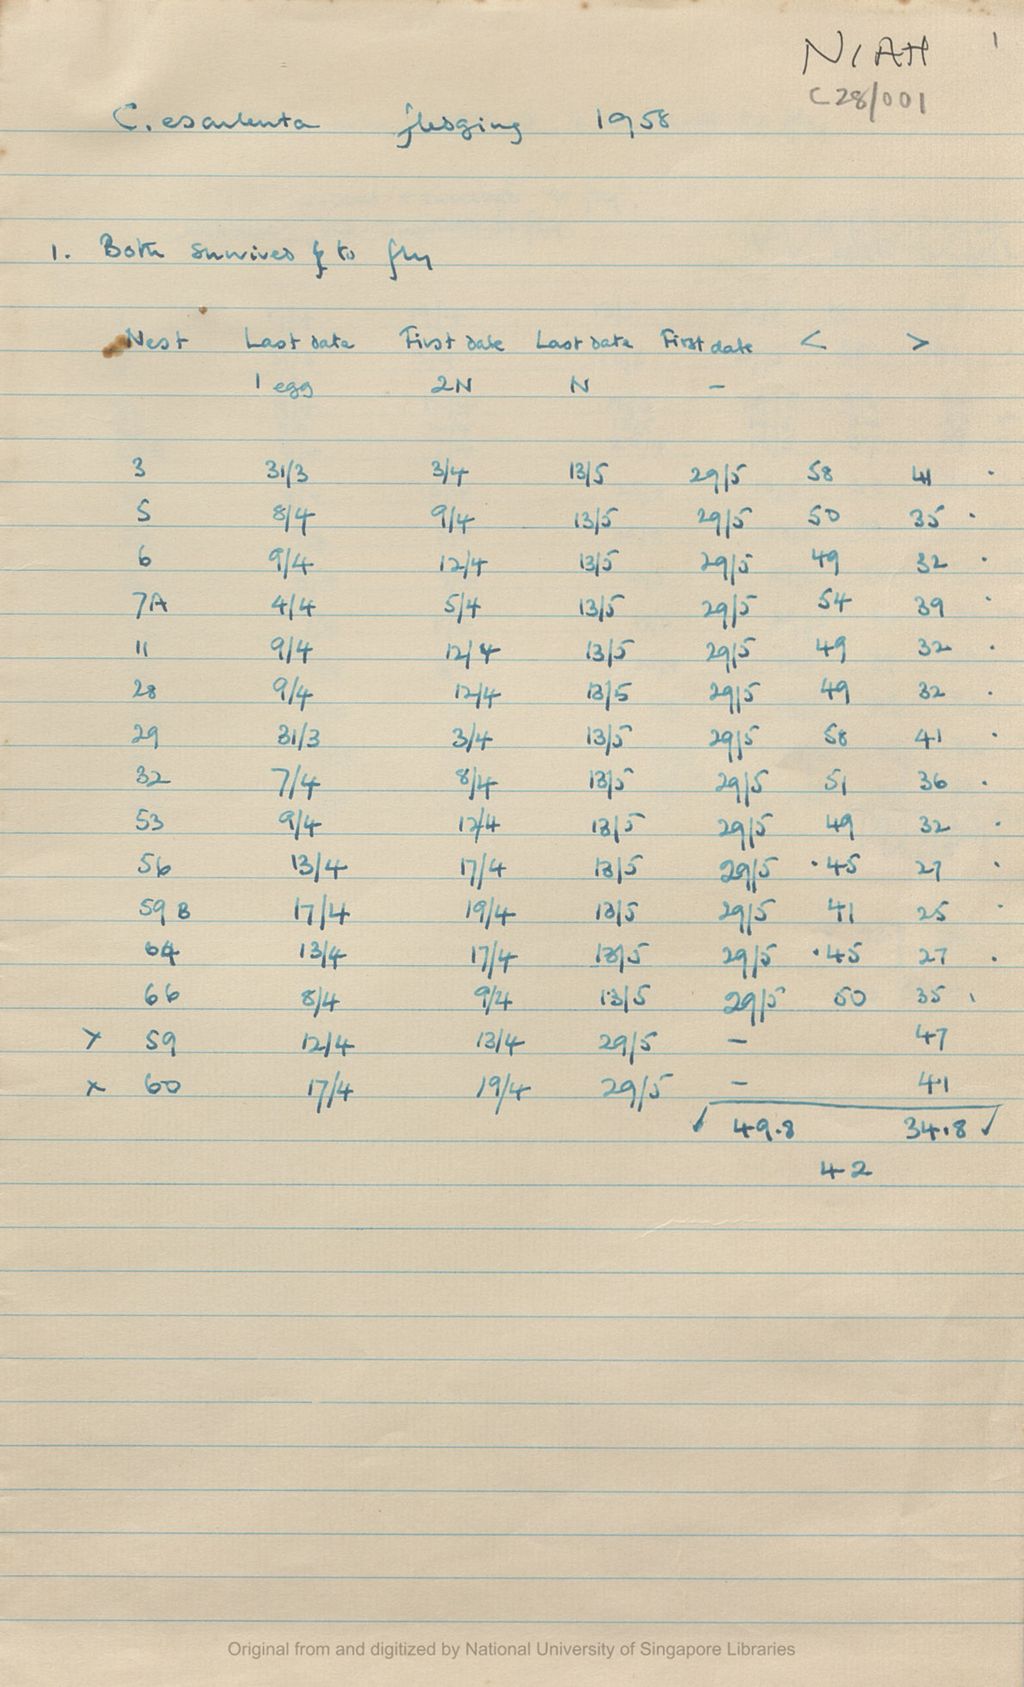 NIAH 1
C28/001
C. esculenta fledging 1958
1. Both survived to fly
Nest Last date First date Last date First date < >
1 egg 2N N -
3 31/3 3/4 13/5 29/5 58 41 .
5 8/4 9/4 13/5 29/5 50 35 .
6 9/4 12/4 13/5 29/5 49 32 .
7A 4/4 5/4 13/5 29/5 54 39 .
11 9/4 12/4 13/5 29/5 49 32 .
28 9/4 12/4 13/5 29/5 49 32 .
29 31/3 3/4 13/5 29/5 58 41 .
32 7/4 8/4 13/5 29/5 51 36 .
53 9/4 12/4 13/5 29/5 49 32 .
56 13/4 17/4 13/5 29/5 .45 27 .
59B 17/4 19/4 13/5 29/5 41 25 .
64 13/4 17/4 13/5 29/5 .45 27 .
66 8/4 9/4 13/5 29/5 50 35 .
x 59 12/4 13/4 29/5 - 47
x 60 17/4 19/4 29/5 - 41
✓ 49.8 34.8 ✓
42
Original from and digitized by National University of Singapore Libraries